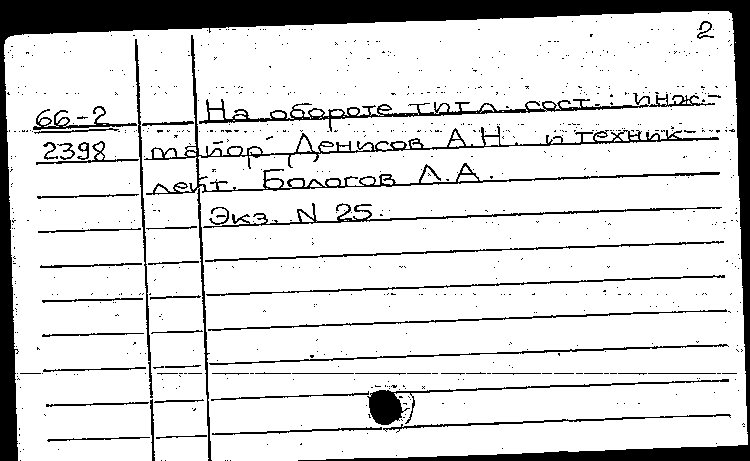 2
66-2 На обороте тит л. сост.: инж.-
2398 майор Денисов А.Н. и техник-
лейт. Бологов Л.А.
Экз. N 25.